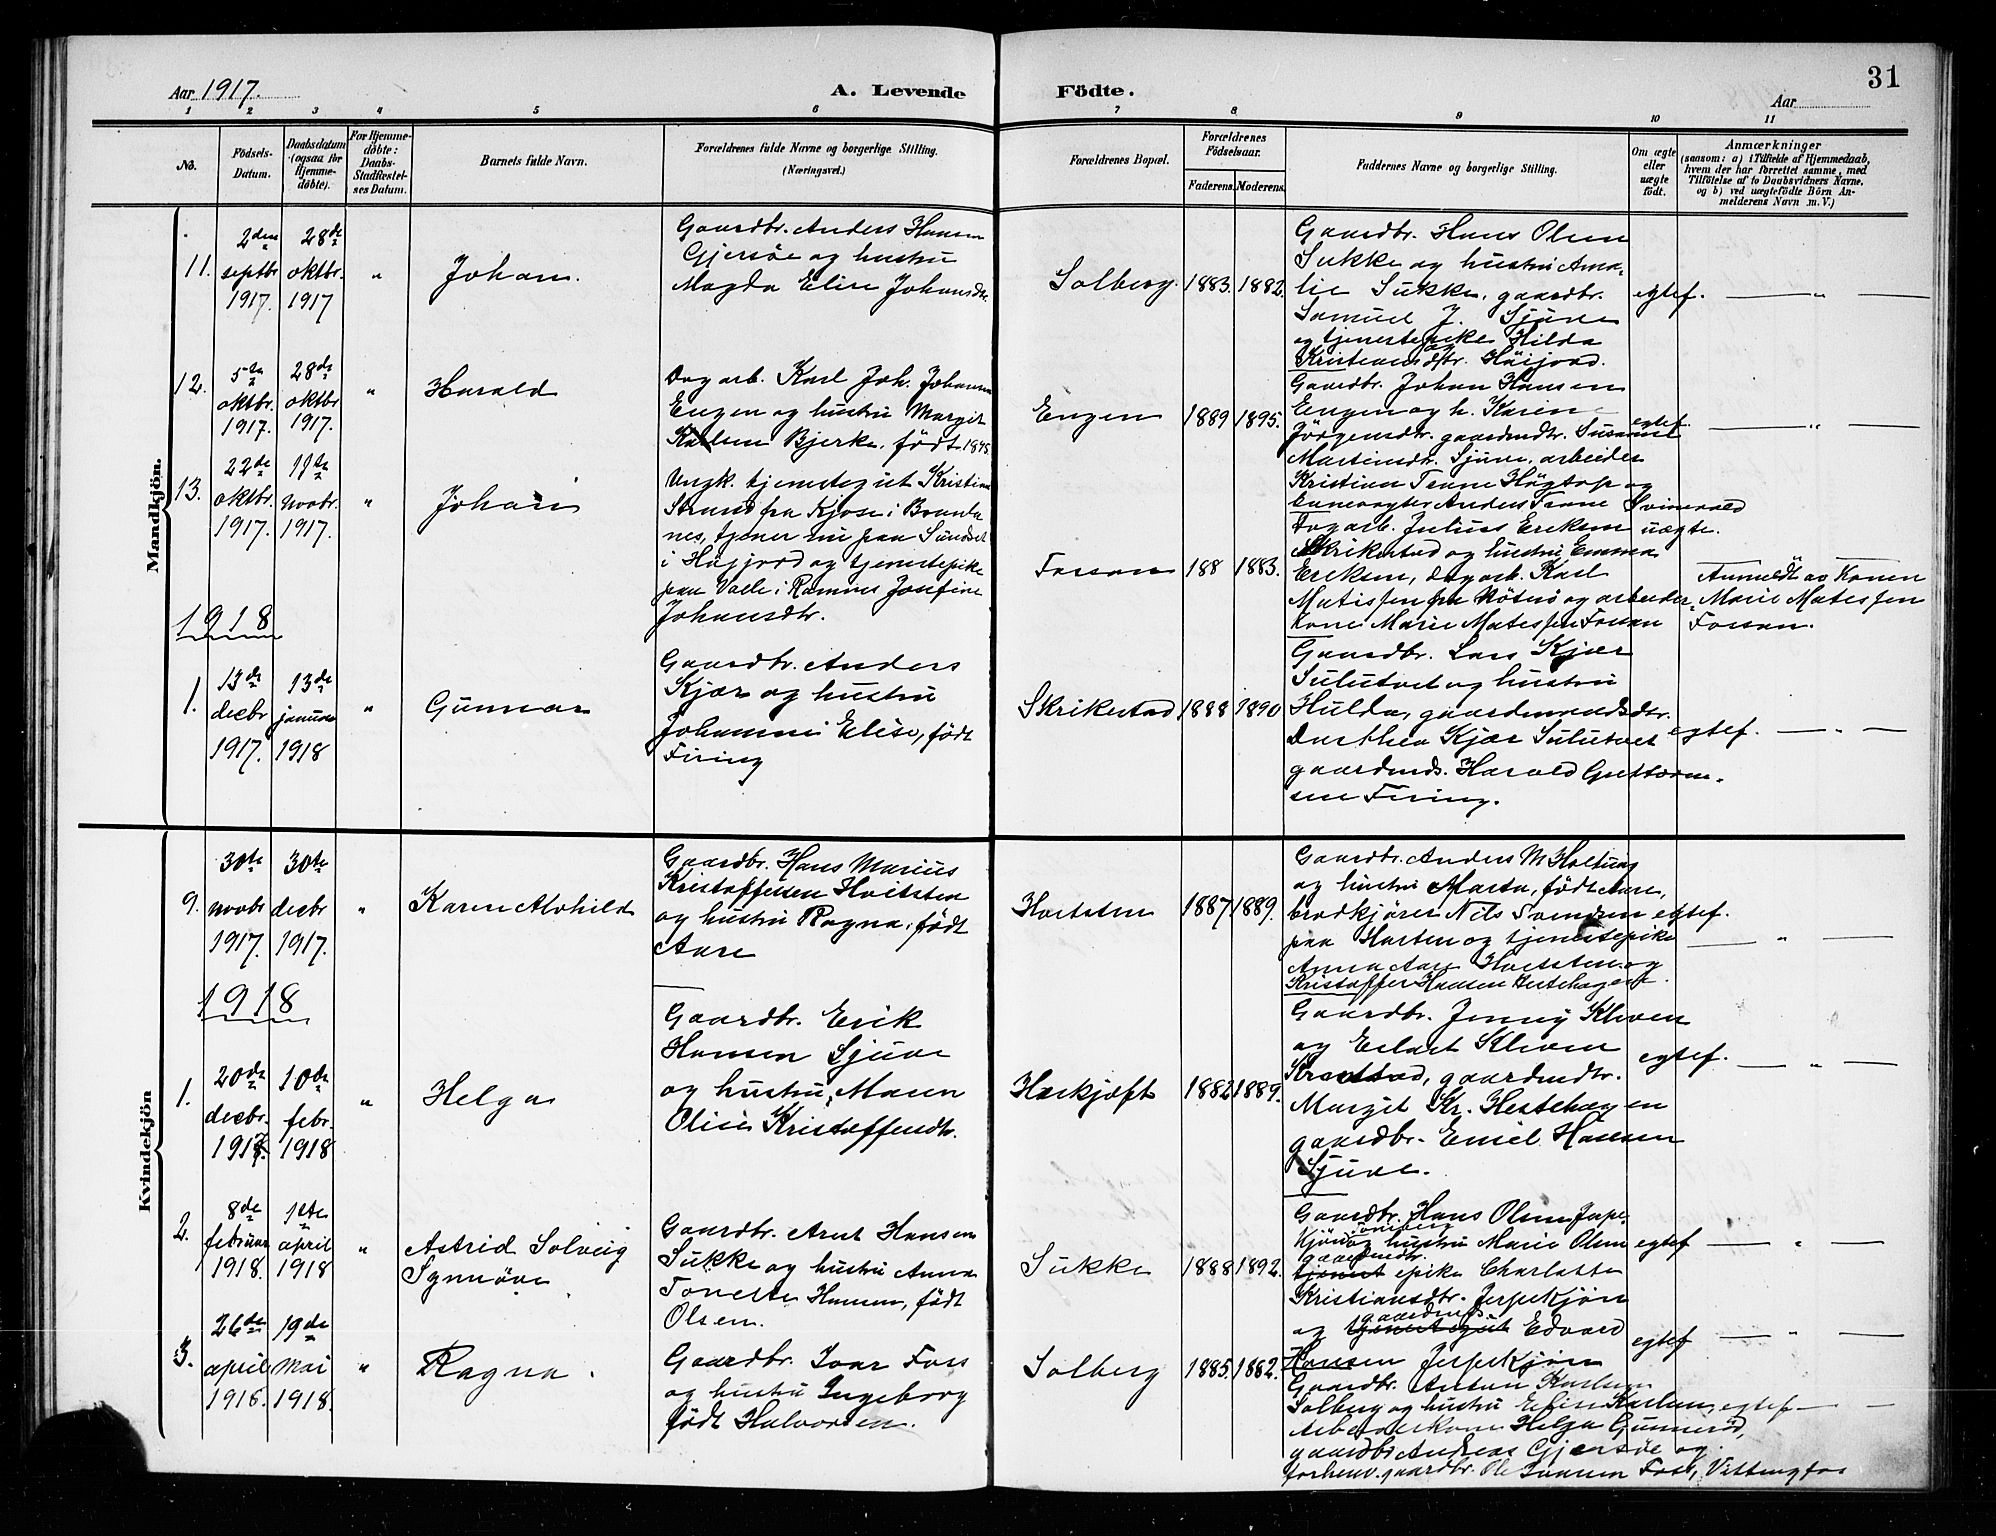 31
Aar 1917.
A. Levende Födte.
Aar
1 2 3 4 5 6 7 8 9 10 11
No.
Födsels-Datum.
Daabsdatum (ogsaa for Hjemmedöbte).
For Hjemmedöbte: Daabs-Stadfæstelses Datum.
Barnets fulde Navn.
Forældrenes fulde Navne og borgerlige Stilling.
(Næringsvei.)
Forældrenes Bopæl.
Forældrenes Födselsaar.
Faderens. Moderens.
Faddernes Navne og borgerlige Stilling.
Om ægte eller uægte födt.
Anmærkninger
(saasom: a) i Tilfælde af Hjemmedaab,
hvem der har forrettet samme, med
Tilföielse af to Daabsvidners Navne,
og b) ved uægtefödte Börn An-
melderens Navn m. V.)
Mandkjön.
11.
2den septbr 1917.
28de oktbr. 1917
"
Johan.
Gaardbr. Anders Hansen
Gjersöe og hustru
Magda Elise Johansdtr.
Solberg.
1883. 1882.
Gaardbr. Hans Olsen
Sukke og hustru Ama-
lie Sukke, gaardbr.
Samuel J. Sjuve
og tjenestepike Hilda
Kristiansdtr. Höijord.
egtef.
"
12.
5te oktbr. 1917.
28de oktbr 1917.
"
Harald
Dagarb. Karl Joh. Johansen
Engen og hustru Margit
Karlsen Bjerke, födt 1895
Engen
1889 1895.
Gaardbr. Johan Hansen
Engen og h. Karen
Jörgensdtr. gaardmdtr. Susanne
Martinsdtr. Sjuve, arbeider
Kristian Teane Högtop og
Anders Teane Svinevold
egtef.
"
13.
22de oktbr. 1917.
11te novbr. 1917.
"
Johan
Ungk. tjenestegut Kristian
Strand fra Kjose i Brunla
nes, tjener nu paa Sundset
i Höijord og tjenestepike
paa Valle i Ramnes Josefine
Johansdtr.
Fossan
188 1883.
Dagarb. Julius Eriksen
Skrikestad og hustru Emma
Eriksen, dagarb. Karl
Matissen fra Nöterö og arbeider
kone Marie Matessen Fossan
uægte.
Anmeldt av Konen
Marie Matessen
Fossan.
1918
1.
13de decbr 1917.
13de januar 1918
"
Gunnar
Gaardbr. Anders
Kjær og hustru
Johanne Elise, födt
Firing
Skrikestad
1888 1890
Gaardbr. Lars Kjær
Sulutvet og hustru
Hulda, gaardmandsdtr.
Dorthea Kjær Sulutvet
gaardmds. Harald Guttorm-
sen Firing.
egtef.
"
Kvindekjön
9.
30te novbr 1917.
30te decbr 1917.
"
Karen Alvhild
Gaardbr. Hans Marius
Kristoffersen Hvitsten
og hustru Ragna, födt
Aare
Hvitsten
1887 1889.
Gaardbr. Anders M Holtung
og hustru Marta, födt Aare,
brödkjörer Nils Svendsen
paa Horten og tjenestepike
Anna Aare Hvitsten og
Kristoffer Hansen Hestehagen.
egtef.
"
1918
1.
20de decbr. 1917.
10de febr. 1918
"
Helga
Gaardbr. Erik
Hansen Sjuve
og hustru Maren
Olise Kristoffersdtr.
Hærkjæft
1882 1889.
Gaardbr. Jenny Kleven
og Erlart Kleven
gaardmdtr.
Margit Kr. Hestehagen
gaardbr. Emil Hansen
Sjuve.
egtef.
"
2.
8de februar 1918.
1ste april 1918
"
Astrid Solveig
Synnöve
Gaardbr. Arnt Hansen
Sukke og hustru Anna
Tonette Hansen, födt
Olsen.
Sukke
1888 1892.
Gaardbr. Hans Olsen Jerpe-
kjön og hustru Marie Olsen
gaardmdtr.
tjenestepike Charlotte
Kristiansdtr. Jerpekjön
gaardmds.
og tjenestegut Edvard
Hansen Jerpekjön
egtef
"
3.
26de april 1918.
19de mai 1918.
"
Ragna.
Gaardbr. Ivar Foss
og hustru Ingeborg
födt Halvorsen.
Solberg
1885. 1882.
egtef
"
Gaardbr. Anton Karlsen
Solberg og hustru Elise Karlsen, egtef
Arbeiderkone Helga Gunneröd,
gaardbr Andreas Gjersöe og
forhenv. gaardbr. Ole Ivarsen Foss, Vittingfos